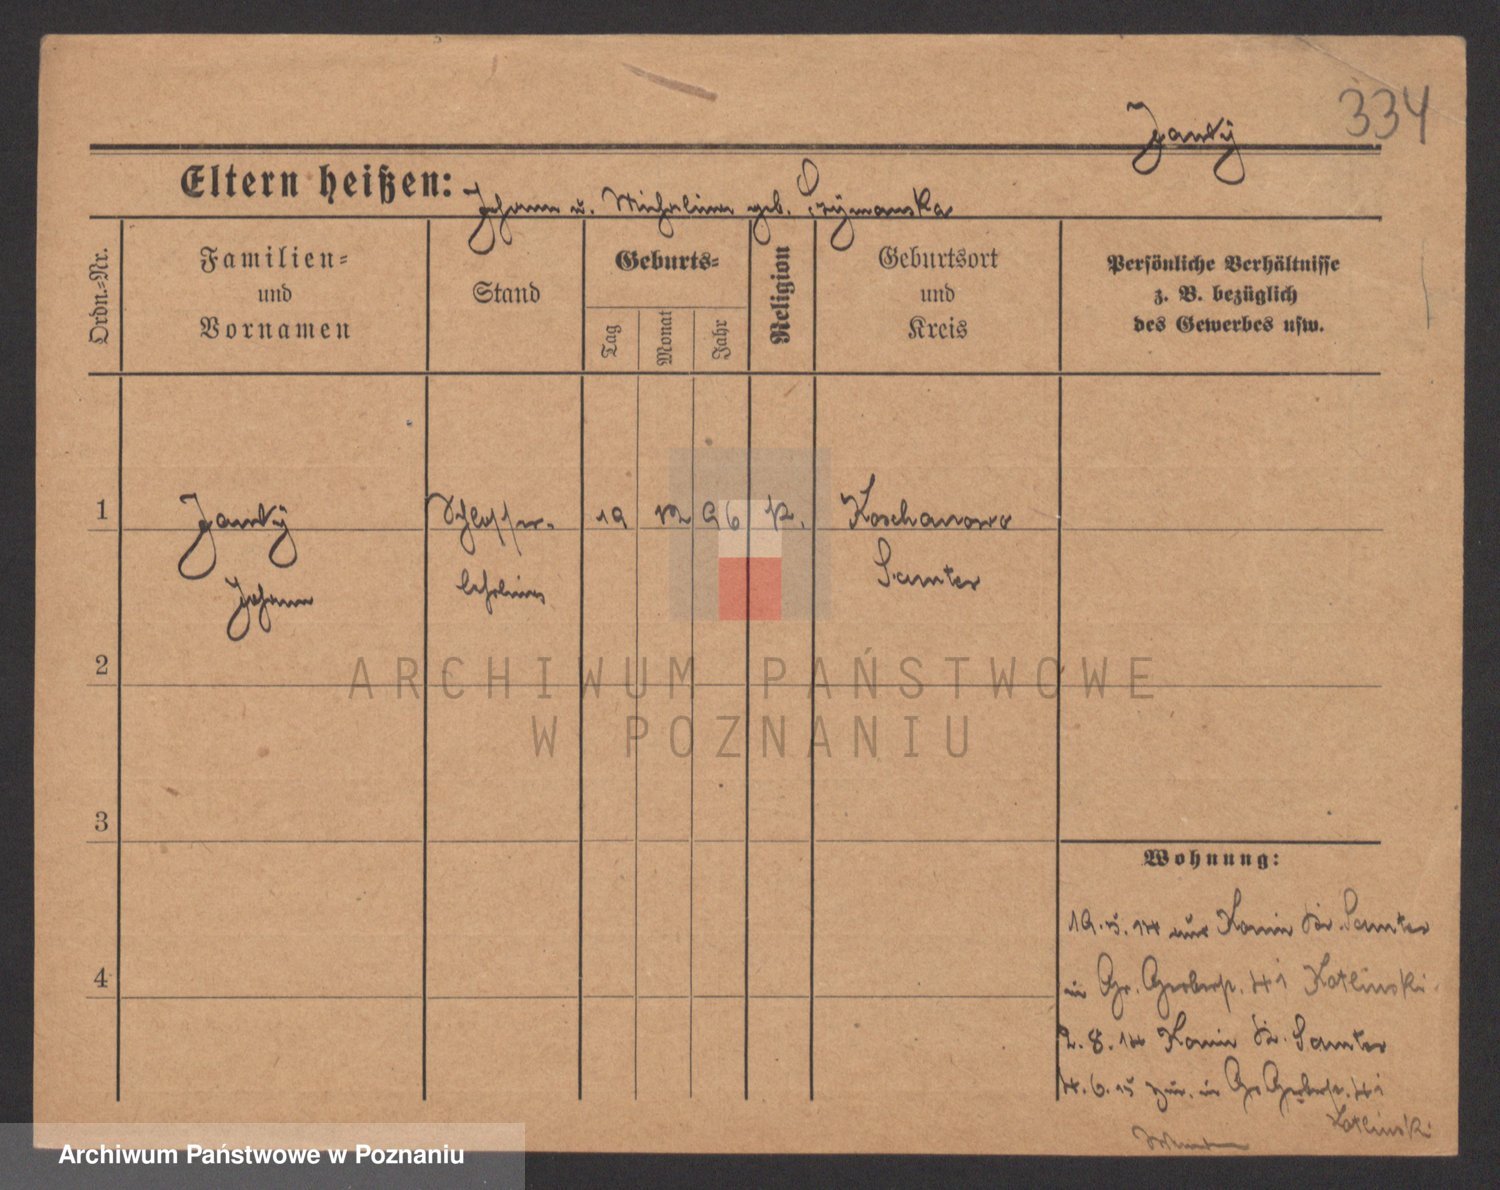 334
Jantÿ
Eltern heißen: Johann u. Michalina geb. Szÿmanska
Ordn.-Nr.
Familien-
und
Vornamen
Stand
Geburts-
Tag
Monat
Jahr
Religion
Geburtsort
und
Kreis
Persönliche Verhältnisse
z. B. bezüglich
des Gewerbes usw.
1 Jantÿ Schlosser- 19 12 96 k. Koschanowo
Johann lehrling Samter
2
3
4
Wohnung:
19.5.14 aus Konin Kr. Samter
in Gr. Gerberstr. 41 Kotlinski
2.8.14 Konin Kr. Samter
4.6.15 zur. in Gr Gerberstr. 41
Kotlinski
ARCHIWUM PAŃSTWOWE
W POZNANIU
Archiwum Państwowe w Poznaniu